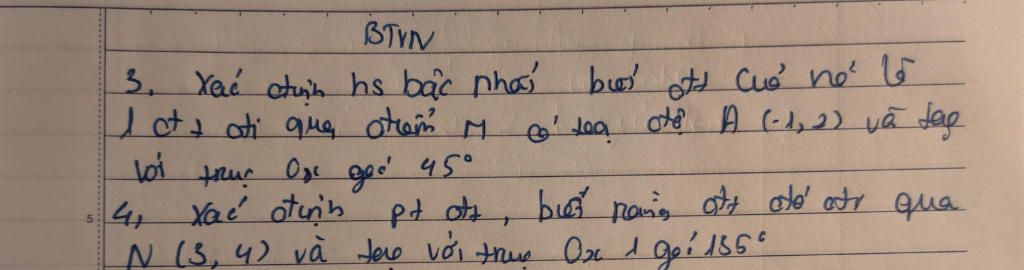 BTVN
3. Xác định hs bậc nhất biết đt của nó là
1 đt, đi qua điểm M có tọa độ A (-1, 2) và tạo
với trục Ox góc 45°
4, Xác định pt đt, biết rằng đt đó đi qua
N (3, 4) và tạo với trục Ox 1 góc 135°
5